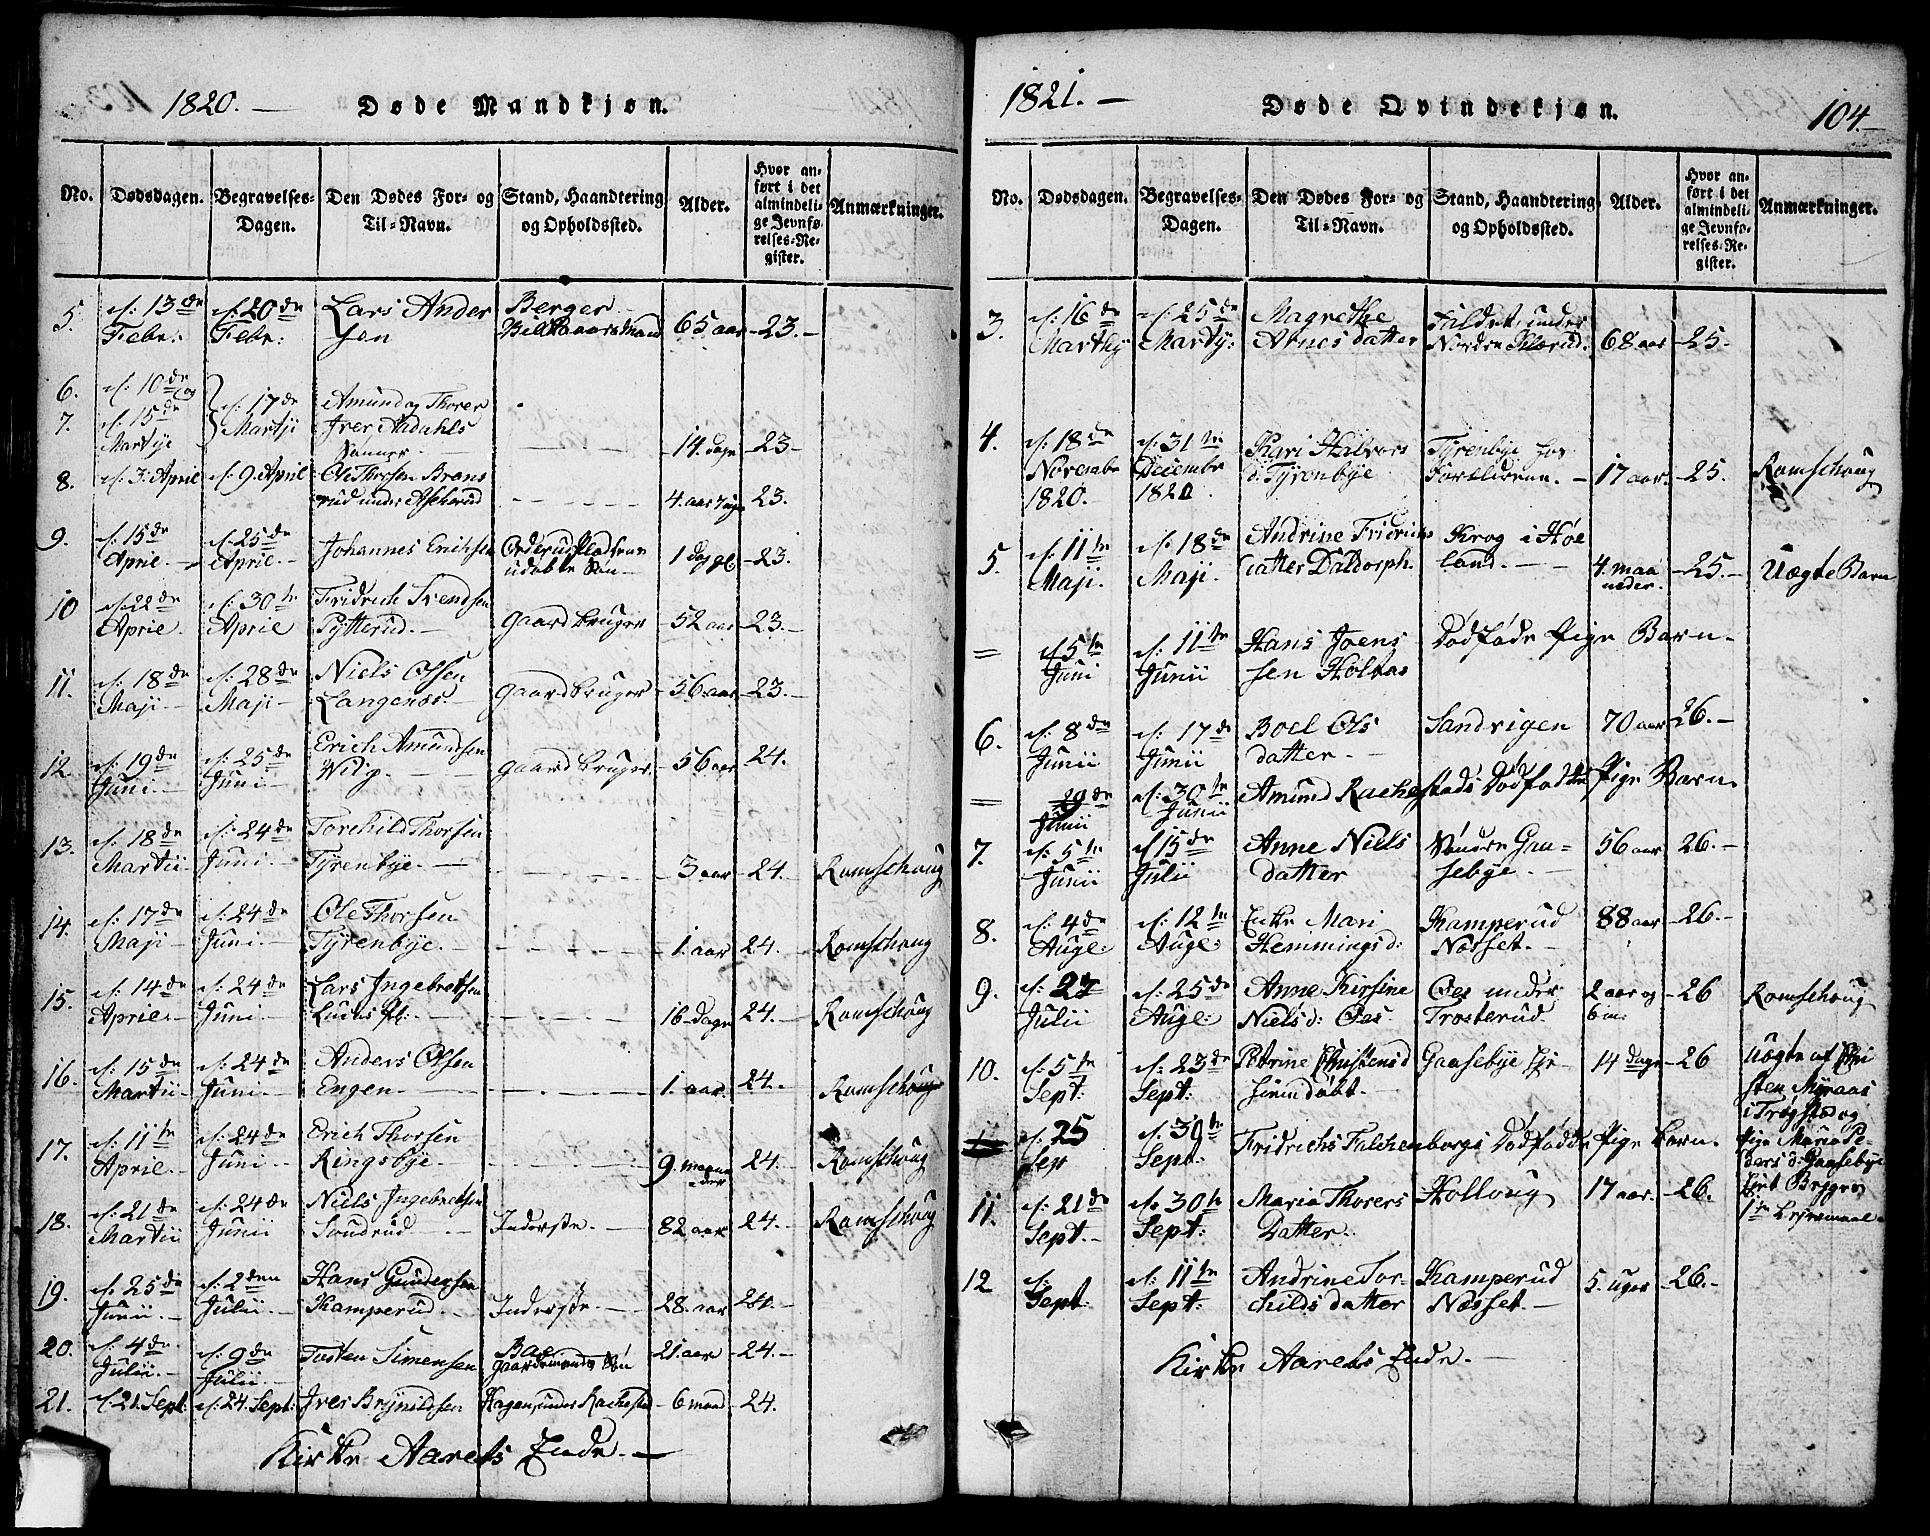 1820. — Døde Mandkjøn.
No. Dødsdagen. Begravelses-Dagen. Den Dødes For- og Til-Navn. Stand, Haandtering og Opholdssted. Alder. Hvor anført i det almindelige Jevnførelses-Register. Anmærkninger.
5. d: 13de Febr: d: 20de Febr: Lars Andersen Berger 65 aar 23.
6. d: 10de og
7. d: 15de Martji d: 17de Martji Amund og Thorer Iver Aadahls Sønner 14 dage 23
8. d: 3. April d: 9. April Ole Thorsen under 4. aar 23.
9. d: 15de Aprie. d: 25de Aprie. Johannes Erichsen udøbte Søn 1 Dag gl 23.
10 d: 22de Aprie. d: 30te Aprie Fridrich Svendsen Pytterud. gaardbruger 52 aar 23.
11. d: 18de Maji d: 28de Maji Niels Olsen Langenæs gaardbruger 56 aar 23.
12. d: 19de Juni d: 25de Juni Erich Amundsen gaardbruger 56 aar 24.
13. d: 18de Martii d: 24de Juni Torchild Thorsen Tyrenbye. 3 aar 24. Romschoug
14. d: 17de Maji d: 24de Juni. Ole Thorsen Tyrenbye. 1. aar 24. Romschoug
15. d: 14de Aprie. d: 24de Juni. Lars Ingebretsen 16 dage 24. Romschoug
16. d: 15de Martii d: 24de Juni Anders Olsen Engen 1. aar 24. Romschoug
17. d: 11te Aprie. d: 24de Juni Erich Thorsen Ringsbye. 9 maaneder 24. Romschoug
18. d: 21de Martii d: 24de Junii Niels Ingebretsen Inderste. 82 aar 24. Romschoug
19. d: 25de Junii. d: 2den Julii Hans Gundersen Kamperud. Inderste. 28. aar 24.
20. d: 4de Julii. d: 9de Julii Tosten Simensen Bae gaardmands Søn 21. aar 24.
21. d: 21. Sept: d: 24. Sept: Iver Brynildsen Hagen, under Rachestad 6 maad 24.
Kirke Aarets Ende. —
1821. — Døde Qvindekjøn. 104.
No. Dødsdagen. Begravelses-Dagen. Den Dødes For- og Til-Navn. Stand, Haandtering og Opholdssted. Alder. Hvor anført i det almindelige Jevnførelses-Register. Anmærkninger.
3. d: 16de d: 25de Martj: Magrethe Arnesdatter Faldet, under Nordre 68 aar 25.
4. d: 18de Novembr 1820. d: 31te Decembr 1820. Kari Halvors d: Tyrenbye Tyrenbye hos Forældrene. 17 aar. 25. Romschoug
5. d: 11te Maji. d: 18de Maji Andrine Fridrichsdatter Daldorph. Krog i Høland. 4. maaneder. 25. Uægte Barn
= d 5te Juni d: 11te Junii Hans Joensen Kolbas Dødføde Pige Barn.
6. d: 8de Junii d: 17de Junii Boel Olsdatter. Sandvigen 70 aar 26.
= 29de Junii d: 30te Junii Amund Rachestads Dødfødde Pige Barn.
7. d: 5te Junii d 15de Julii Anne Nielsdatter Søndre Gaasebye. 56 aar 26.
8. d: 4de Auge: d: 12te Auge: Enke Mari Hemmingsd: Kamperud Næsset. 88 aar 26.
9. d: 27 Julii d: 25de Auge: Anne Kirstine Nielsd: Oes Oes under Trosterud 2 aar og 6 m: 26 Romschoug
10. d: 5te Sept: d: 23de Sept: Petrine Christensd hjemdøbt Gaasebye Eje 14 dage 26 Uægte af Christen Myraas i Trøgstad og Pige Marie Pedersd: Gaasebye 1te Lejermaal
d: 25 Sep d: 30te Sept: Fridrichs Falchenborgs Dødfødde Pige barn.
11. d: 21de Sept. d: 30te Sept: Maria Thorers Datter. Kolloug 17 aar. 26.
12 d: Sept: d: 11te Sept: Andrine Torchildsdatter Kamperud Næsset 5. uger 26.
Kirke Aarets Ende. —